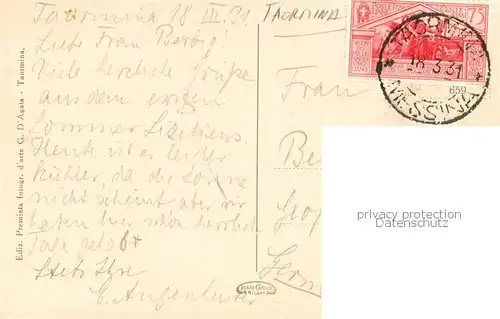 Taormina 18 III. 31
Liebe Frau Berbig!
Viele herzliche Grüße
aus dem ewigen
Sommer Siziliens.
Heute ist es leider
kühler, da die Sonne
nicht scheint aber wir
haben hier schon herrliche
Tage
Stets Ihre
TAORMINA
Frau
Ediz. Premiata fotogr. d'arte G. D'Agata - Taormina.
75
TAORMINA
18.3.31
MESSINA
privacy protection
watermark